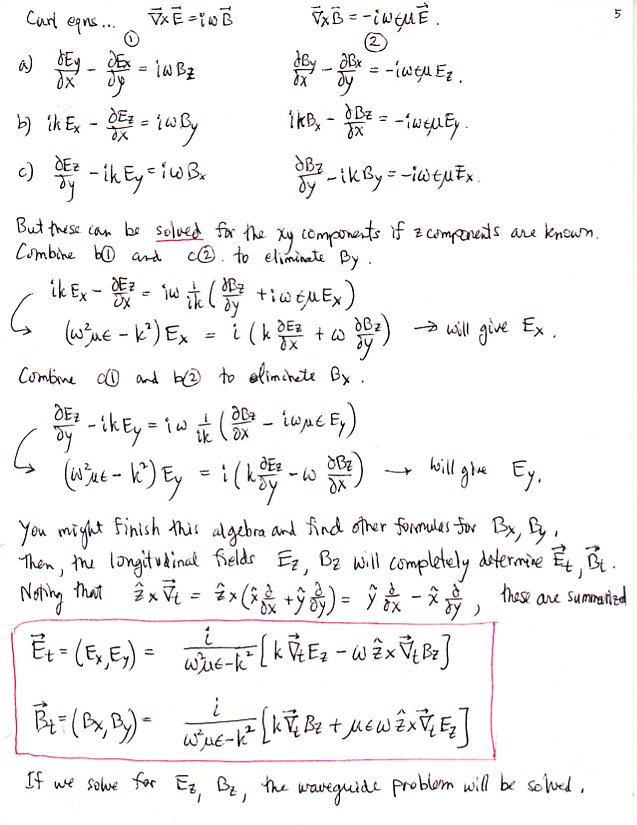 Curl eqns... ∇⃗×E⃗ = iωB⃗   ∇⃗×B⃗ = -iωεμE⃗.   5
①   ②
a) ∂Ey/∂x - ∂Ex/∂y = iωBz   ∂By/∂x - ∂Bx/∂y = -iωεμEz.
b) ikEx - ∂Ez/∂x = iωBy   ikBx - ∂Bz/∂x = -iωεμEy.
c) ∂Ez/∂y - ikEy = iωBx   ∂Bz/∂y - ikBy = -iωεμEx.
But these can be solved for the xy components if z components are known.
Combine b① and c②. to eliminate By.
ikEx - ∂Ez/∂x = iω 1/ik (∂Bz/∂y + iωεμEx)
(ω²με - k²) Ex = i (k ∂Ez/∂x + ω ∂Bz/∂y) → will give Ex.
Combine c① and b② to eliminate Bx.
∂Ez/∂y - ikEy = iω 1/ik (∂Bz/∂x - iωμεEy)
(ω²με - k²) Ey = i (k ∂Ez/∂y - ω ∂Bz/∂x) → will give Ey.
You might finish this algebra and find other formulas for Bx, By.
Then, the longitudinal fields Ez, Bz will completely determine E⃗t, B⃗t.
Noting that ẑ×∇⃗t = ẑ×(x̂ ∂/∂x + ŷ ∂/∂y) = ŷ ∂/∂x - x̂ ∂/∂y, these are summarized
E⃗t = (Ex, Ey) = i/(ω²με-k²) [k∇⃗tEz - ω ẑ×∇⃗tBz]
B⃗t = (Bx, By) = i/(ω²με-k²) [k∇⃗tBz + μεω ẑ×∇⃗tEz]
If we solve for Ez, Bz, the waveguide problem will be solved.